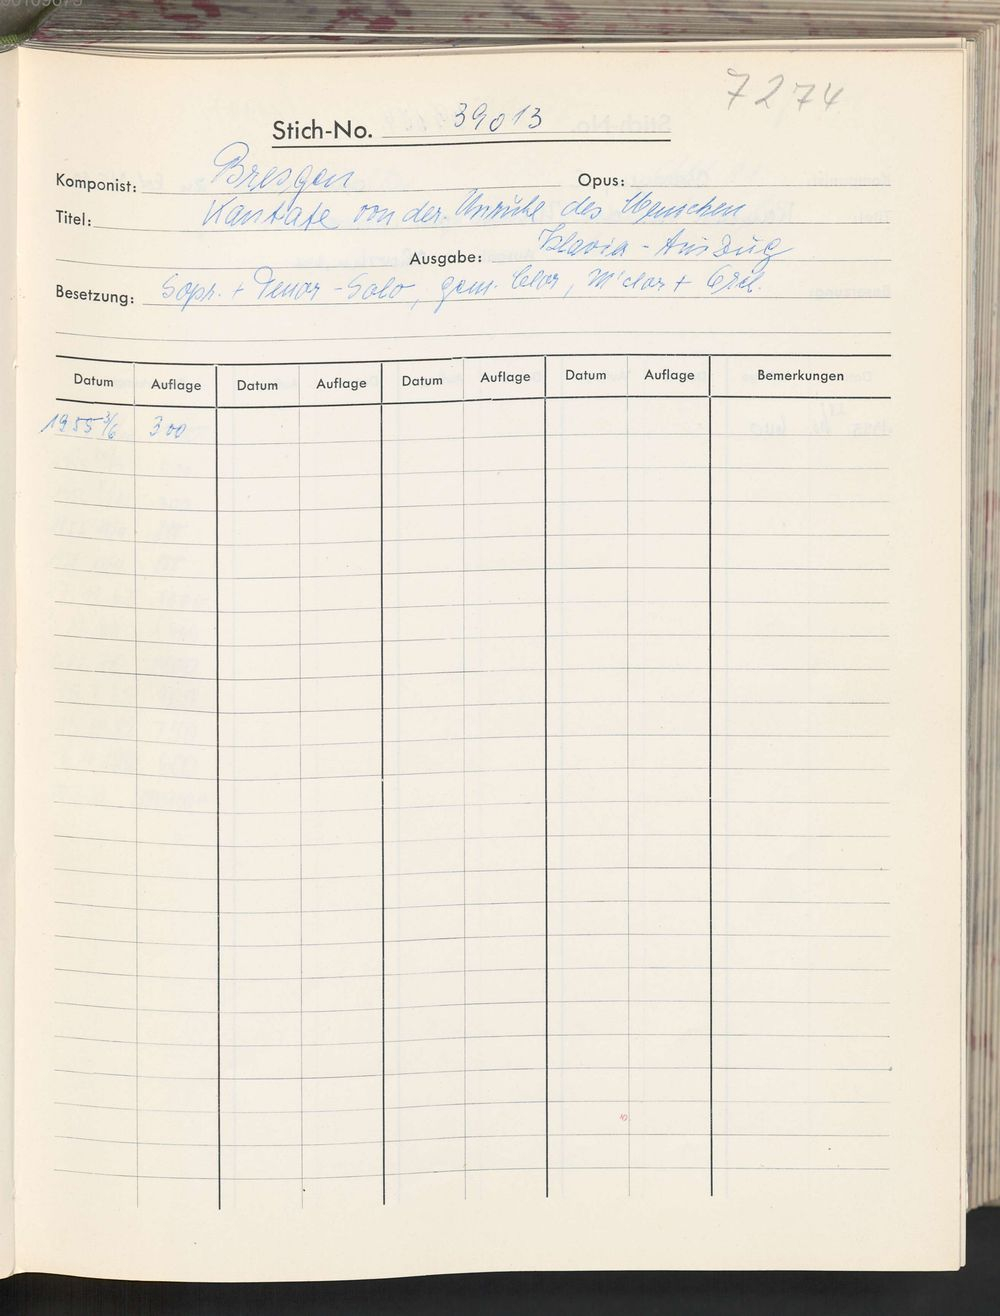 7274
Stich-No. 39013
Komponist: Bresgen Opus:
Titel: Kantate von der Unruhe des Menschen
Ausgabe: Klavier-Auszug
Besetzung: Sopr. + Tenor-Solo, gem. Chor, M'chor + Orch.
Datum Auflage Datum Auflage Datum Auflage Datum Auflage Bemerkungen
1955 300